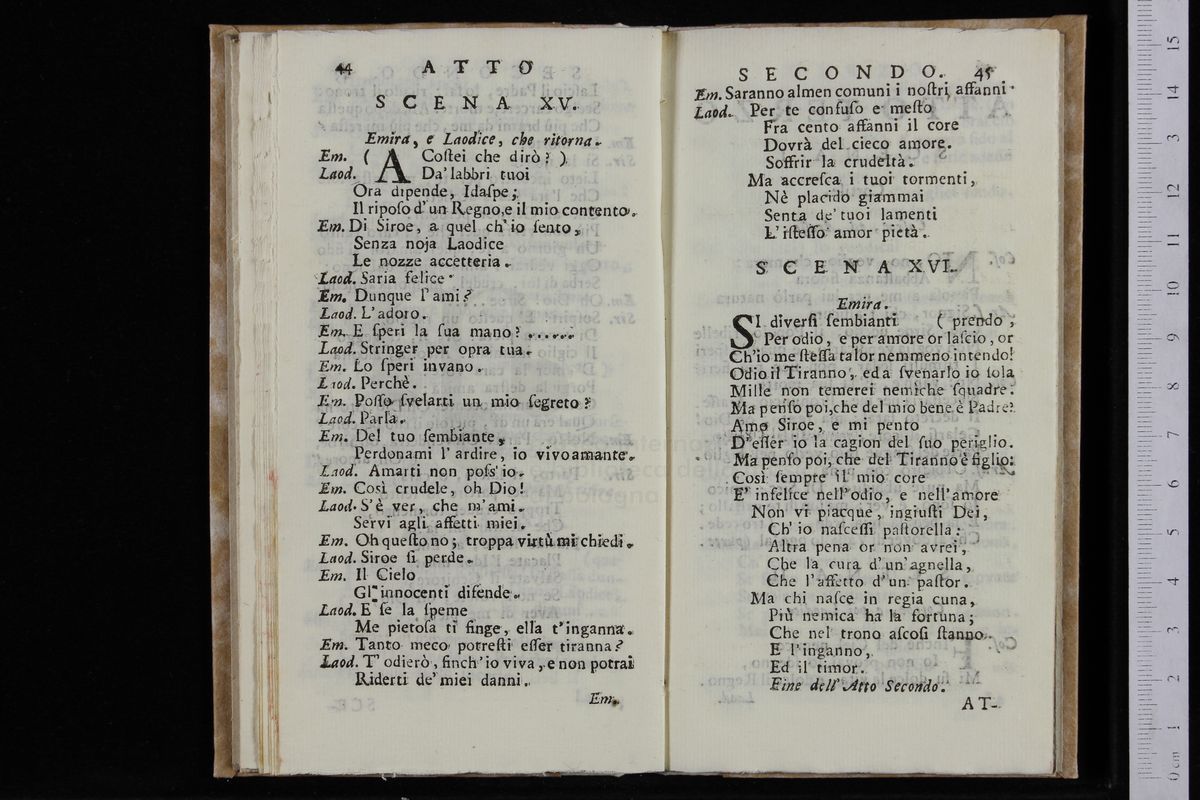 44 ATTO
SCENA XV.
Emira, e Laodice, che ritorna.
Em. ( A Coſtei che dirò? )
Laod. Da' labbri tuoi
Ora dipende, Idaſpe;
Il ripoſo d'un Regno, e il mio contento.
Em. Di Siroe, a quel ch'io ſento,
Senza noja Laodice
Le nozze accetteria.
Laod. Saria felice.
Em. Dunque l'ami?
Laod. L'adoro.
Em. E ſperi la ſua mano? ......
Laod. Stringer per opra tua.
Em. Lo ſperi invano.
Laod. Perchè.
Em. Poſſo ſvelarti un mio ſegreto?
Laod. Parla.
Em. Del tuo ſembiante,
Perdonami l'ardire, io vivo amante.
Laod. Amarti non poſs'io.
Em. Così crudele, oh Dio!
Laod. S'è ver, che m'ami.
Servi agli affetti miei.
Em. Oh queſto no; troppa virtù mi chiedi.
Laod. Siroe ſi perde.
Em. Il Cielo
Gl'innocenti difende.
Laod. E ſe la ſpeme
Me pietoſa ti finge, ella t'inganna.
Em. Tanto meco potreſti eſſer tiranna?
Laod. T'odierò, finch'io viva, e non potrai
Riderti de' miei danni.
Em.
SECONDO. 45
Em. Saranno almen comuni i noſtri affanni.
Laod. Per te confuſo e meſto
Fra cento affanni il core
Dovrà del cieco amore.
Soffrir la crudeltà.
Ma accreſca i tuoi tormenti,
Nè placido giammai
Senta de' tuoi lamenti
L'iſteſſo amor pietà.
SCENA XVI.
Emira.
SI diverſi ſembianti ( prendo,
Per odio, e per amore or laſcio, or
Ch'io me ſteſſa talor nemmeno intendo!
Odio il Tiranno, ed a ſvenarlo io ſola
Mille non temerei nemiche ſquadre.
Ma penſo poi, che del mio bene è Padre.
Amo Siroe, e mi pento
D'eſſer io la cagion del ſuo periglio.
Ma penſo poi, che del Tiranno è figlio;
Così ſempre il mio core
E' infelice nell'odio, e nell'amore
Non vi piacque, ingiuſti Dei,
Ch'io naſceſſi paſtorella:
Altra pena or non avrei,
Che la cura d'un'agnella,
Che l'affetto d'un paſtor.
Ma chi naſce in regia cuna,
Più nemica ha la fortuna;
Che nel trono aſcoſi ſtanno.
E l'inganno,
Ed il timor.
Fine dell'Atto Secondo.
AT-